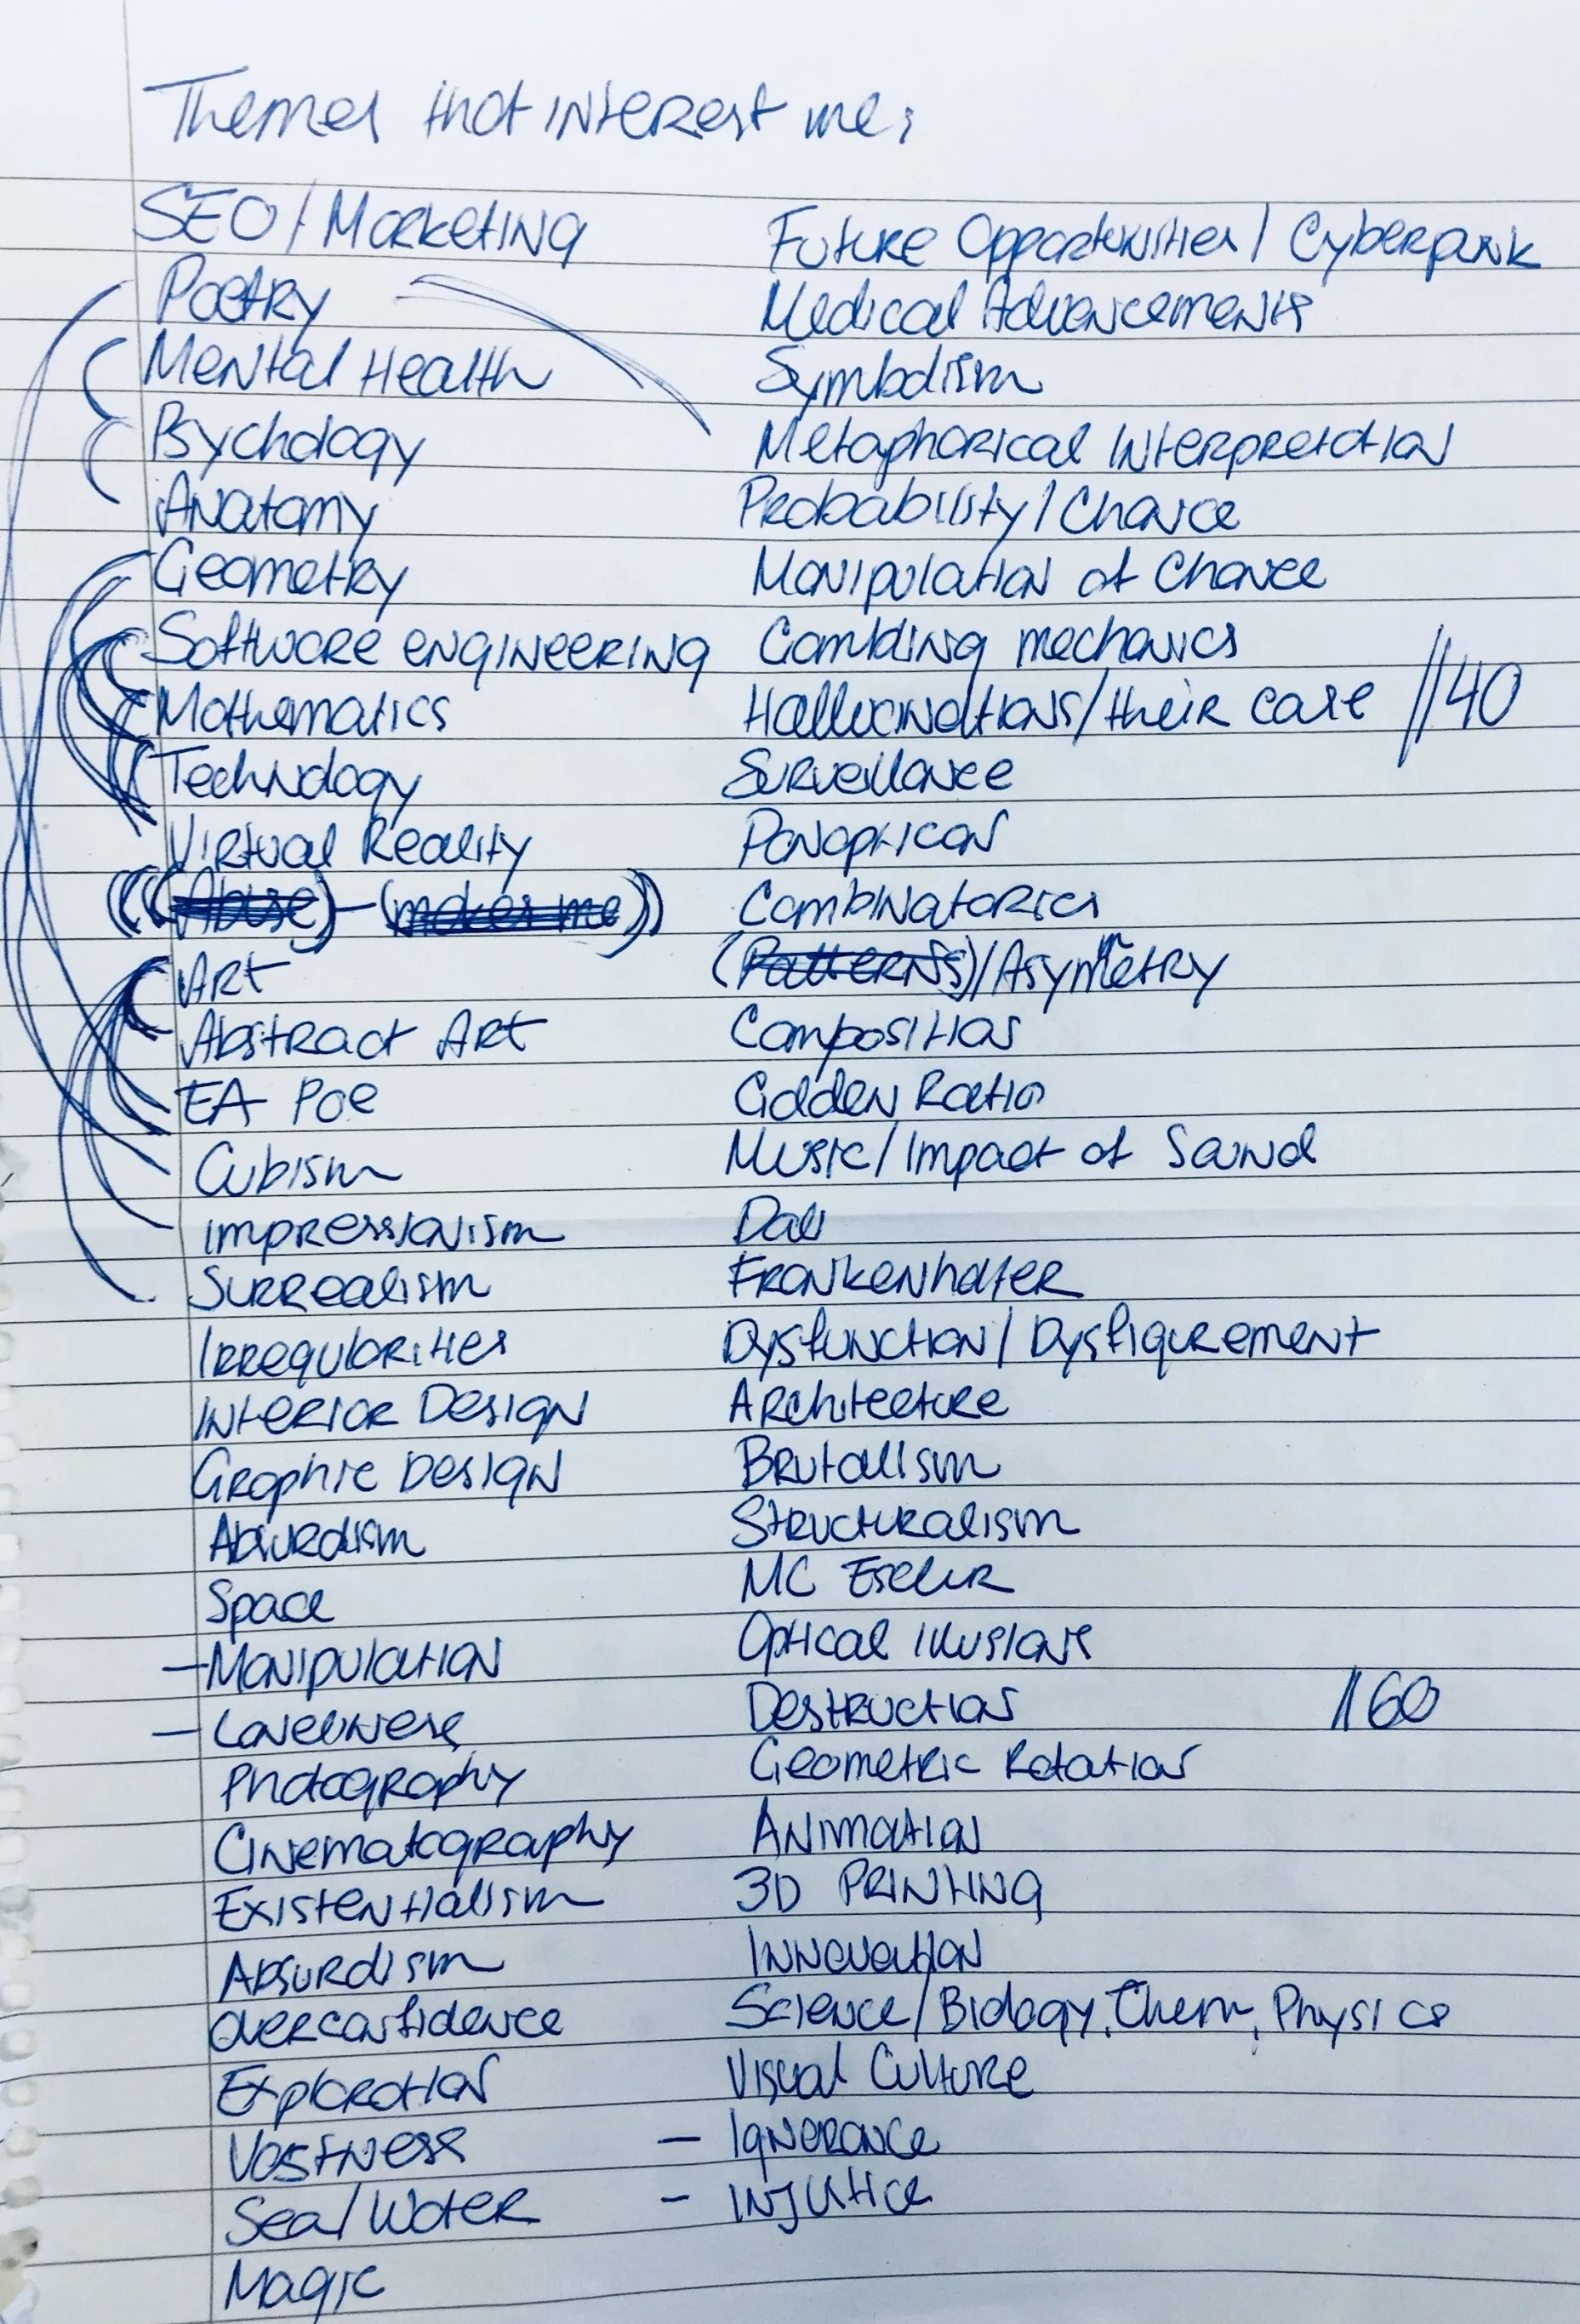 Themes that interest me:
SEO/Marketing
Poetry
Mental Health
Psychology
Anatomy
Geometry
Software engineering
Mathematics
Technology
Virtual Reality
(((Abuse)-(makes me))
Art
Abstract Art
EA Poe
Cubism
impressionism
Surrealism
Irregularities
Interior Design
Graphic Design
Absurdism
Space
-Manipulation
- Loneliness
Photography
Cinematography
Existentialism
Absurdism
Overconfidence
Exploration
Vastness
Sea/Water
Magic
Future Opportunities/Cyberpunk
Medical Advancements
Symbolism
Metaphorical Interpretation
Probability/Chance
Manipulation of Chance
Gambling mechanics
Hallucinations/their case //40
Surveillance
Panopticon
Combinatorics
(Patterns)/Asymmetry
Composition
Golden Ratio
Music/Impact of Sound
Dali
Frankenhaler
Dysfunction/Dysfigurement
Architecture
Brutalism
Structuralism
MC Escher
Optical illusions
Destruction //60
Geometric Rotation
Animation
3D Printing
Innovation
Science/Biology, Chem, Physics
Visual Culture
- Ignerance
- Injutice